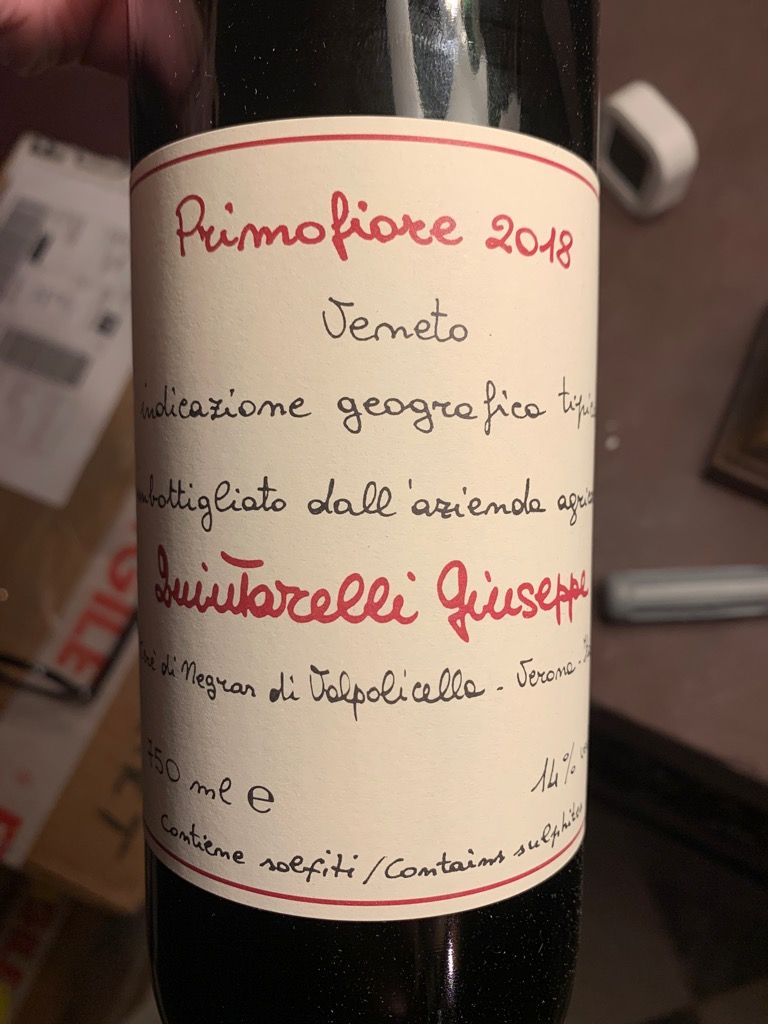 Primofiore 2018
Veneto
indicazione geografica
dall'azienda
Quintarelli Giuseppe
di Negrar di Valpolicella - Verona -
750 ml e
14%
Contiene solfiti / Contains sulphites
GILE